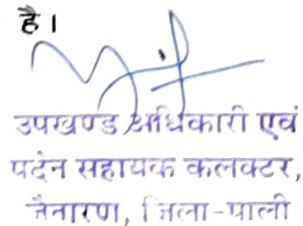 है।
उपखण्ड अधिकारी एवं
पदेन सहायक कलक्टर,
जैतारण, जिला-पाली